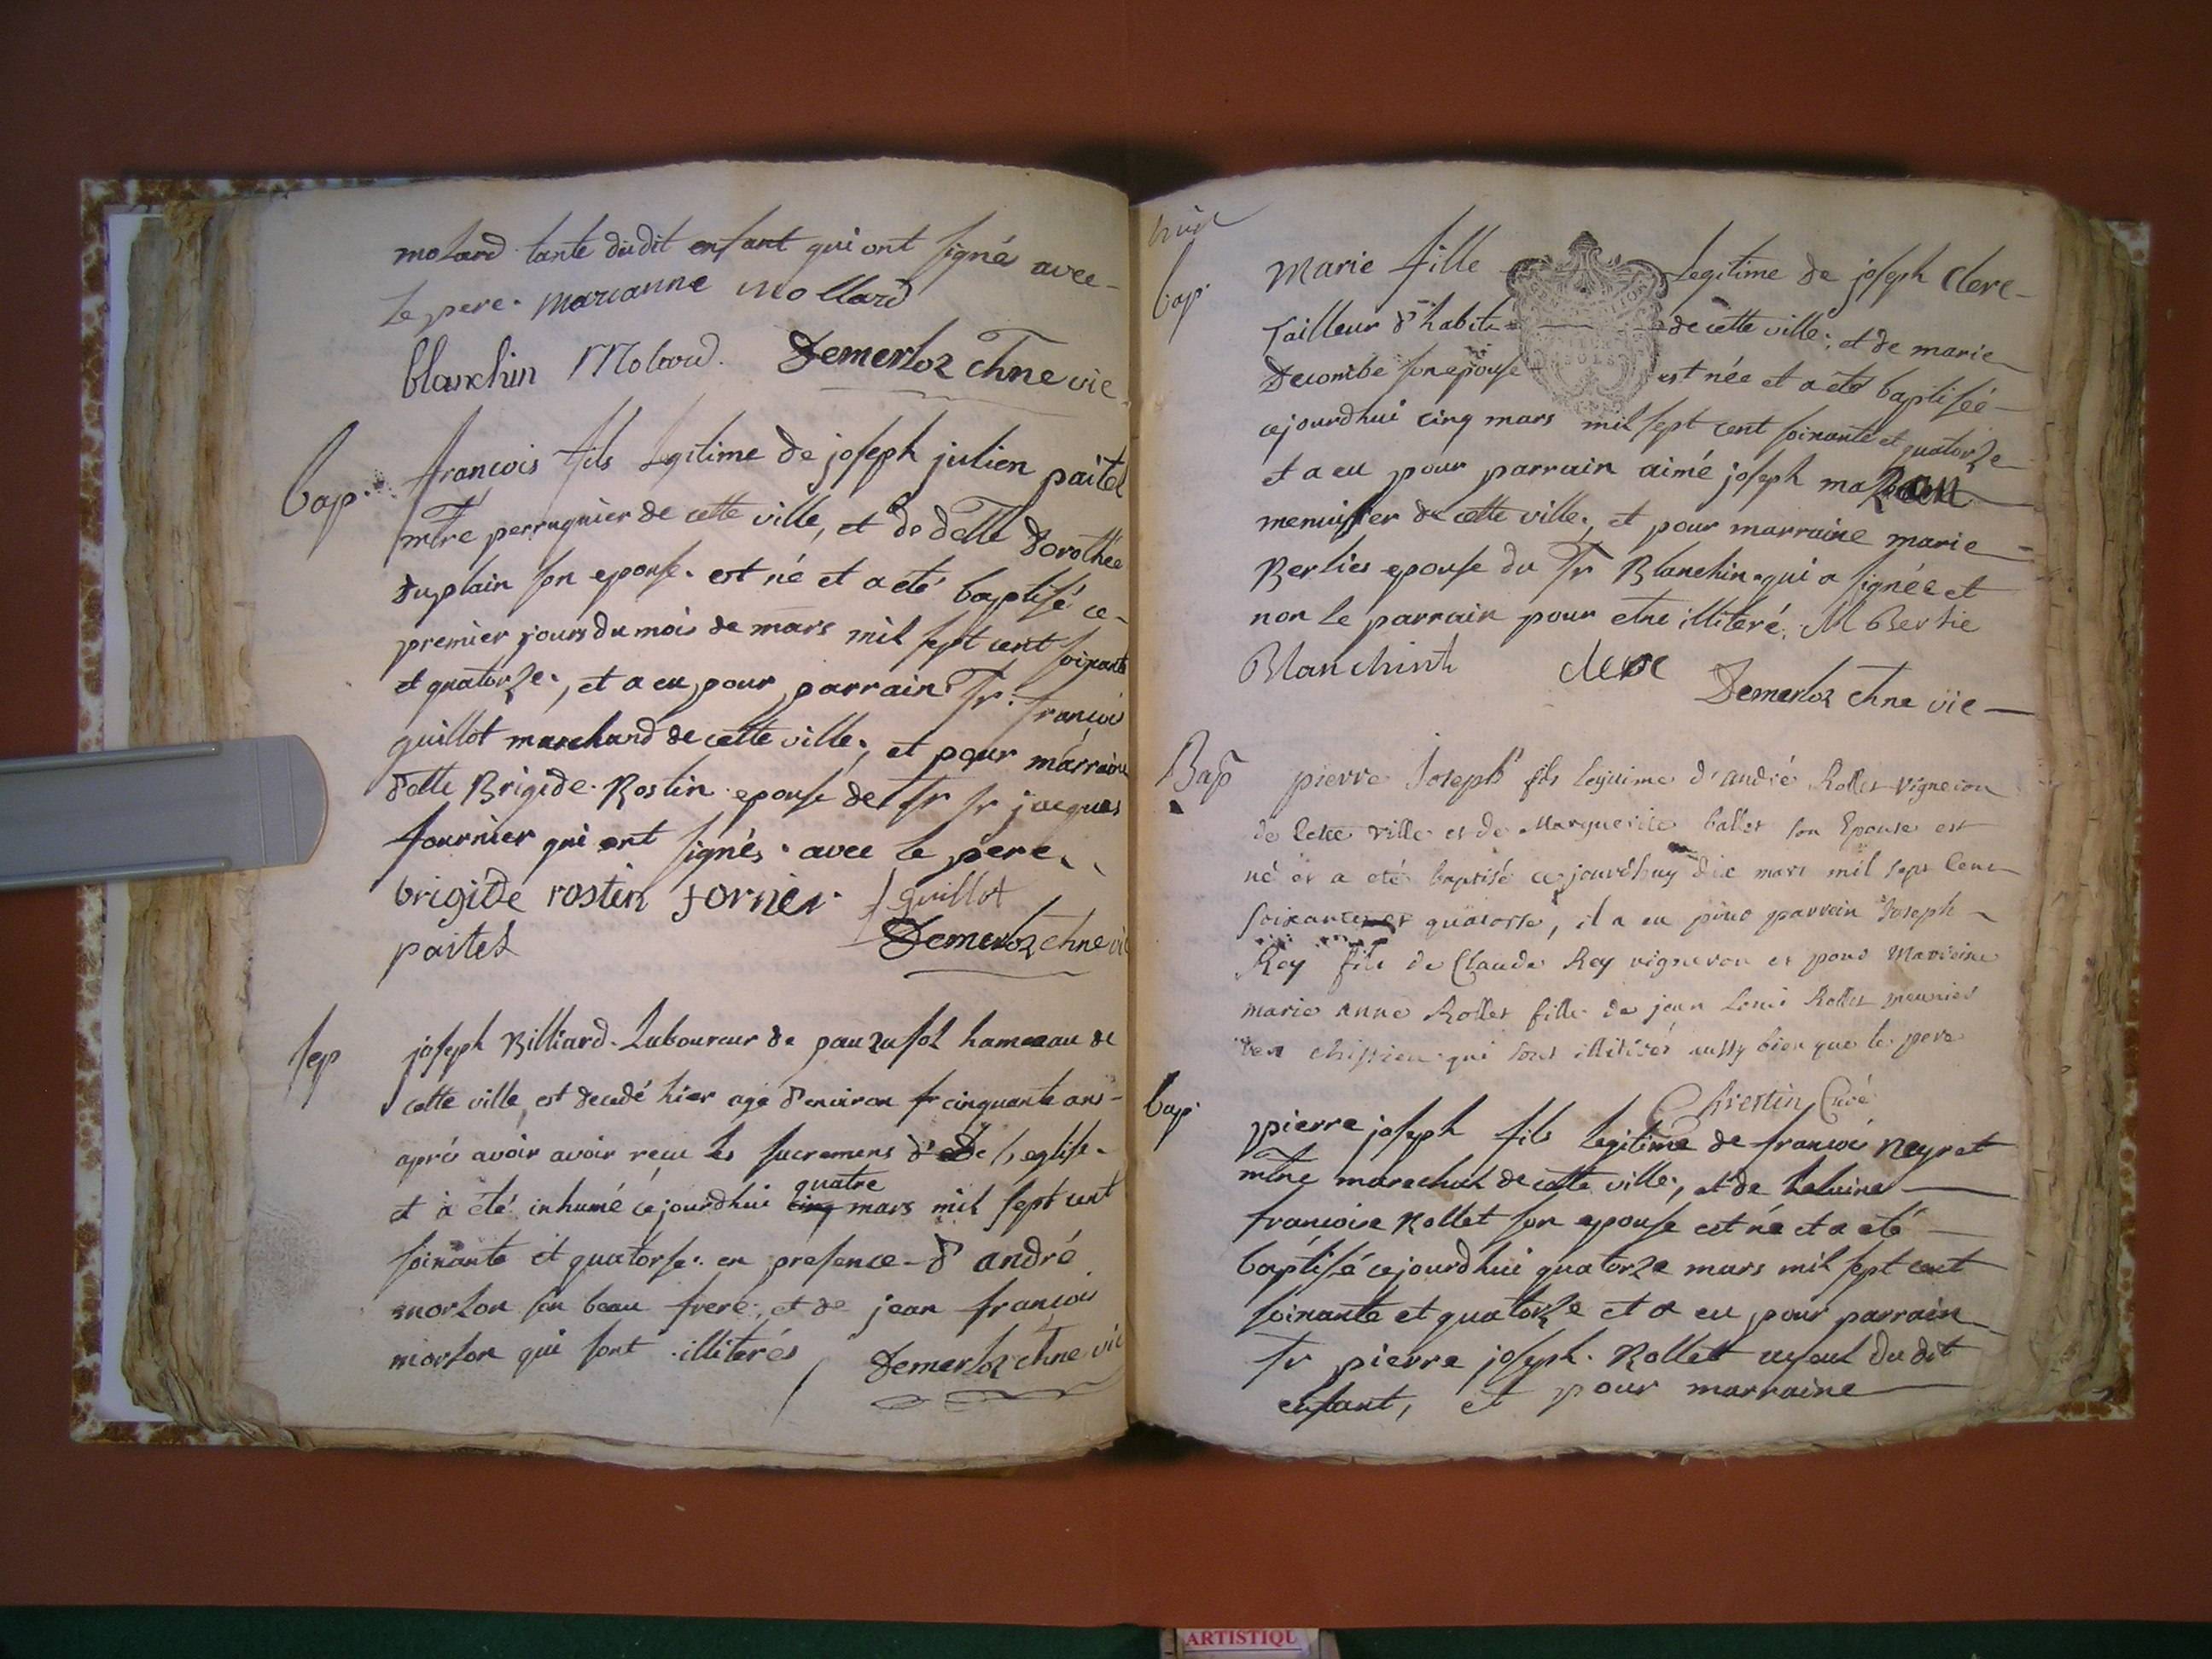 molard tante dudit enfant qui ont signé avec
le pere. marianne mollard
blanchin Molard. Demerloz chne vic
bap. francois fils legitime de joseph julien paitel
mtre perruquier de cette ville, et de delle dorothée
duplain son epouse. est né et a eté baptisé ce
premier jours du mois de mars mil sept cent soixante
et quatorze, et a eu pour parrain sr. francois
guillot marchand de cette ville, et pour marraine
delle Brigide Rostin epouse de sr sr jacques
fournier qui ont signés avec le pere
brigitde rostin fornier guillot
paitel Demerloz chne vic
sep joseph Billiard laboureur de hameau de
cette ville est decedé hier agé d'environ cinquante ans
aprés avoir avoir reçu les sacremens de l'eglise
et à eté inhumé cejourdhui cinq quatre mars mil sept cent
soixante et quatorse. en presence d'andré
morlon son beau frere, et de jean françois
morlon qui sont illiterés Demerloz chne vic
bap. Marie fille legitime de joseph Clerc
tailleur d'habits de cette ville, et de marie
Decombe son epouse est née et a eté baptisée
cejourdhui cinq mars mil sept cent soixante et quatorze
et a eu pour parrain aimé joseph mazan
menuisier de cette ville, et pour marraine marie
Berlies epouse du sr Blanchin qui a signée et
non le parrain pour etre illiteré. M Berlie
Blanchin clerc
Demerloz chne vic
Bap pierre Joseph fils legitime d'andré Rollet vigneron
de cette ville et de Marguerite ballet son Epouse est
né et a eté baptisé ce jourdhuy dix mars mil sept cent
soixante et quatorse, il a eu pour parrain Joseph
Rey fils de Claude Rey vigneron et pour Marreine
marie anne Rollet fille de jean Loui Rollet meunier
qui sont illitérés aussy bien que le pere
Chrestin Curé
bap. pierre joseph fils legitime de francois neyret
mtre marechal de cette ville, et de
francoise Rollet son epouse est né et a eté
baptisé cejourdhui quatorze mars mil sept cent
soixante et quatorze et a eu pour parrain
sr pierre joseph Rollet ayeul dudit
enfant, et pour marraine
ARTISTIQU